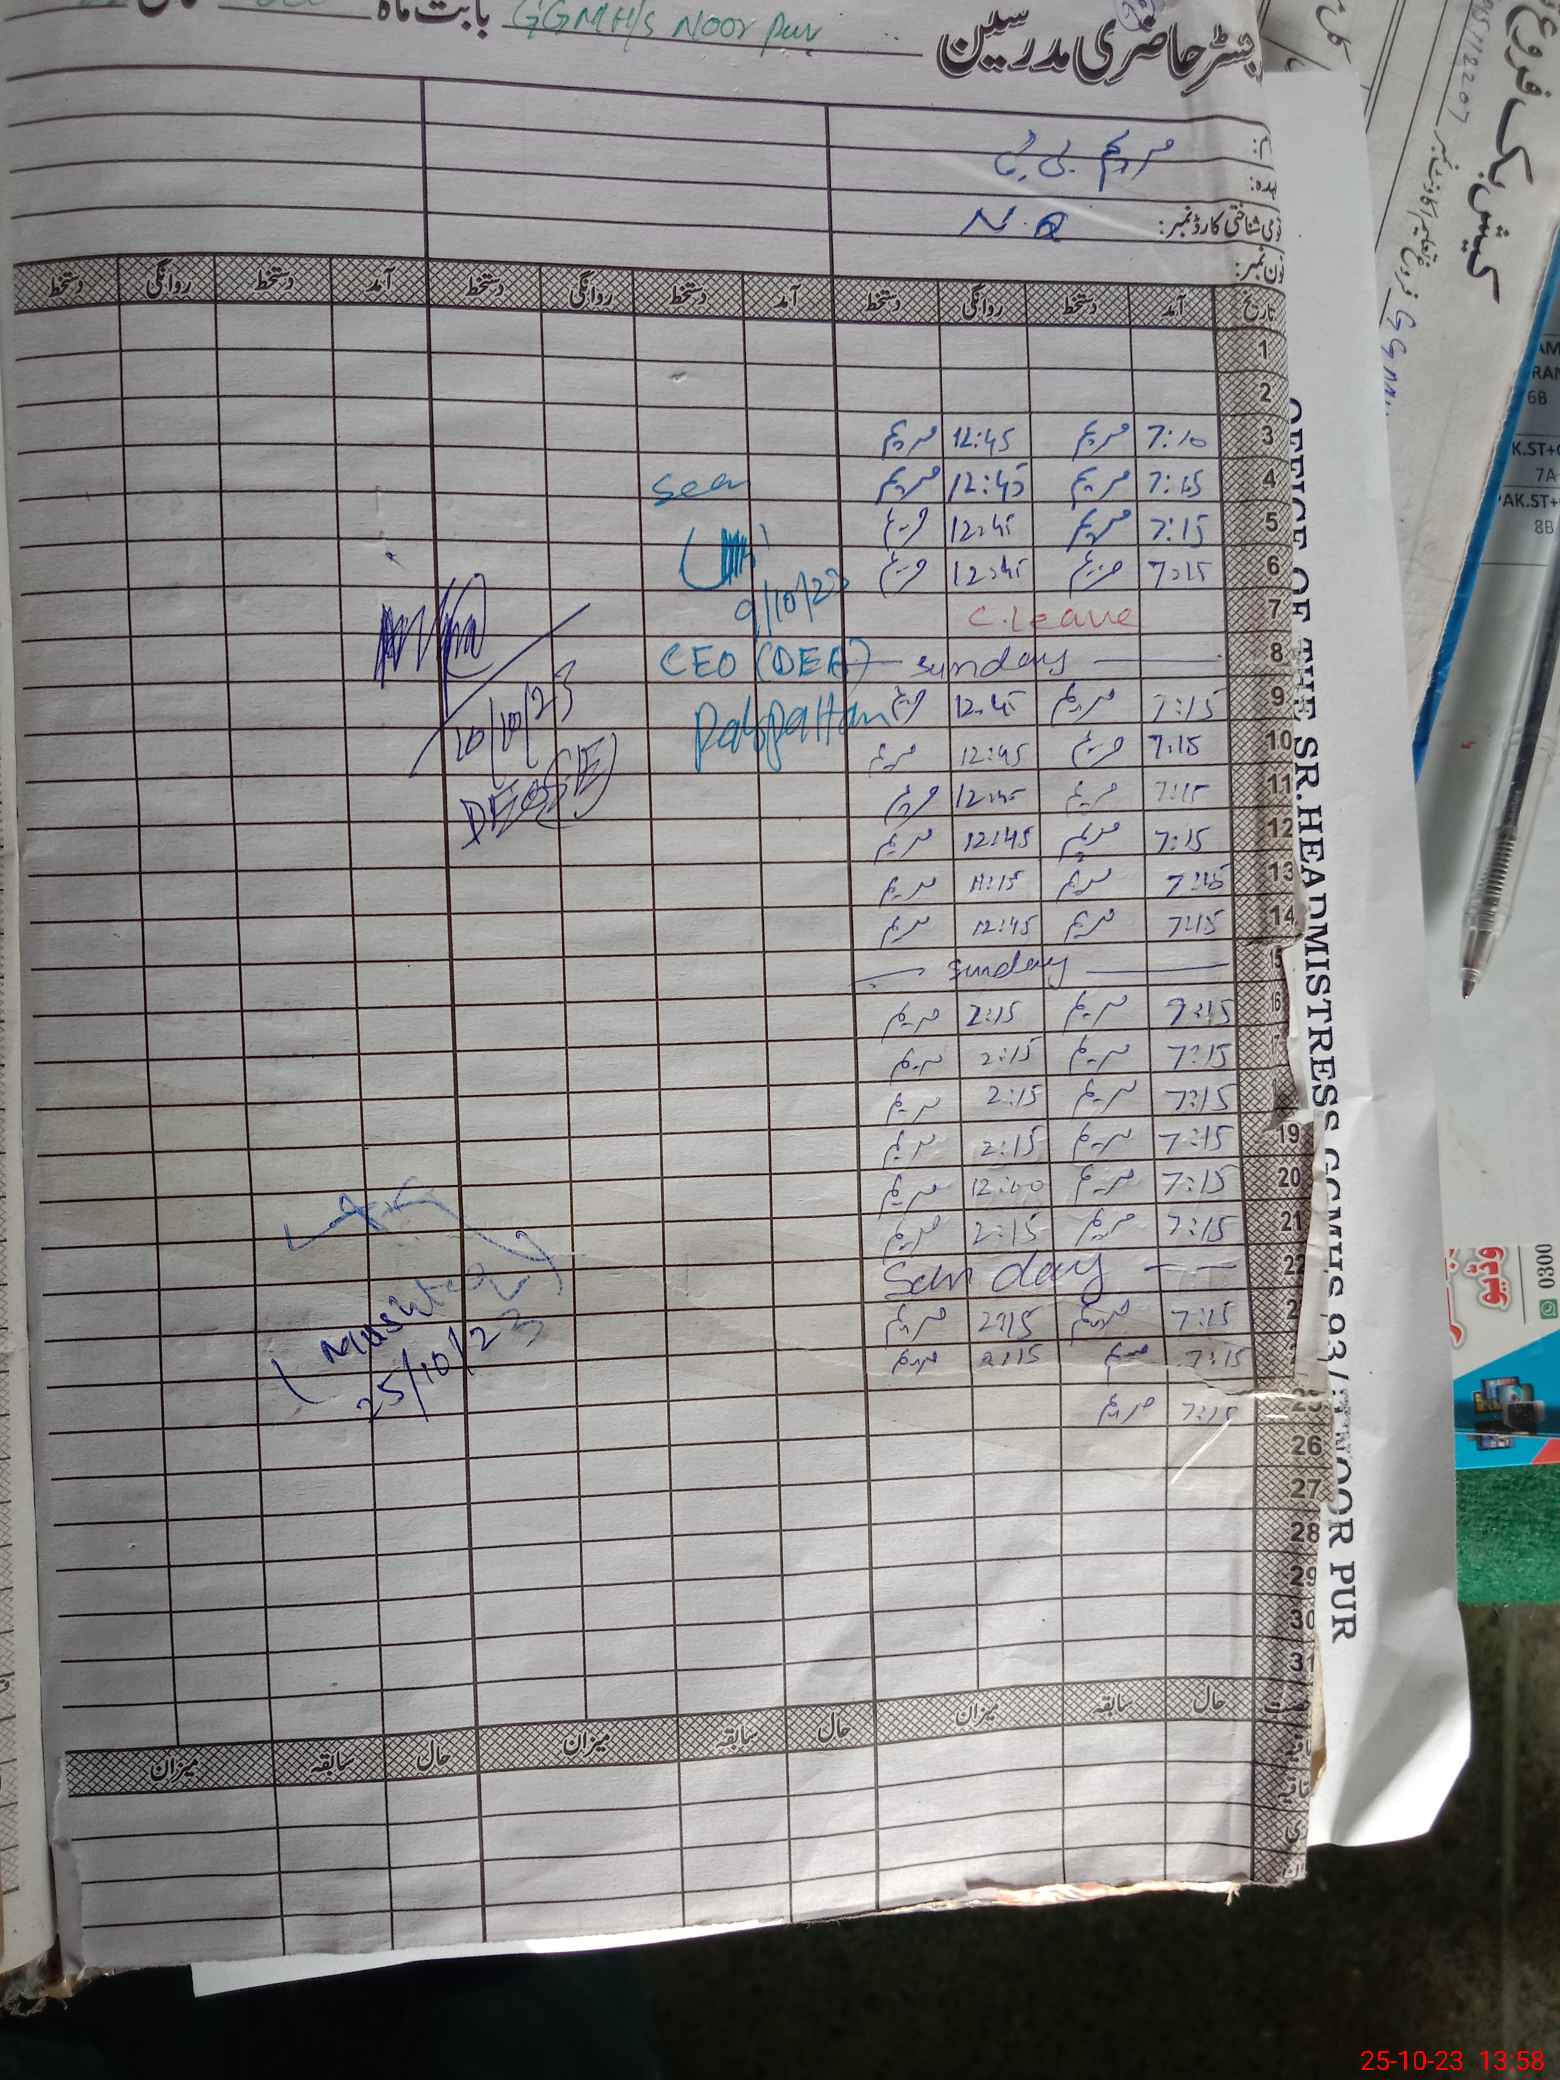 بابت ماہ GGMH/S Noor Pur
رجسٹر حاضری مدرسین
مریم بی بی
قومی شناختی کارڈ نمبر:
N.Q
فون نمبر:
تاریخ آمد دستخط روانگی دستخط آمد دستخط روانگی دستخط آمد دستخط روانگی دستخط
1
2
3 7:10 مریم 12:45 مریم
4 7:15 مریم 12:45 مریم
5 7:15 مریم 12:45 مریم
6 7:15 مریم 12:45 مریم
7 C.Leave
8 Sunday
9 7:15 مریم 12:45 مریم
10 7:15 مریم 12:45 مریم
11 7:15 مریم 12:45 مریم
12 7:15 مریم 12:45 مریم
13 7:15 مریم 11:15 مریم
14 7:15 مریم 12:45 مریم
5 Sunday
6 7:15 مریم 2:15 مریم
7:15 مریم 2:15 مریم
7:15 مریم 2:15 مریم
19 7:15 مریم 2:15 مریم
20 7:15 مریم 12:00 مریم
21 7:15 مریم 2:15 مریم
22 Sunday
2 7:15 مریم 2:15 مریم
7:15 مریم 2:15 مریم
25 7:15 مریم
26
27
28
29
30
31
حال سابقہ میزان حال سابقہ میزان حال سابقہ میزان
Seen
9/10/23
CEO (DEA)
Pakpattan
10/10/23
DEO(SE)
Mushtaq
25/10/23
OFFICE OF THE SR.HEADMISTRESS GGMHS 93/ NOOR PUR
کیش بک فروغ
GGM
6B
K.ST+
7A
AK.ST+
8B
0300
25-10-23 13:58